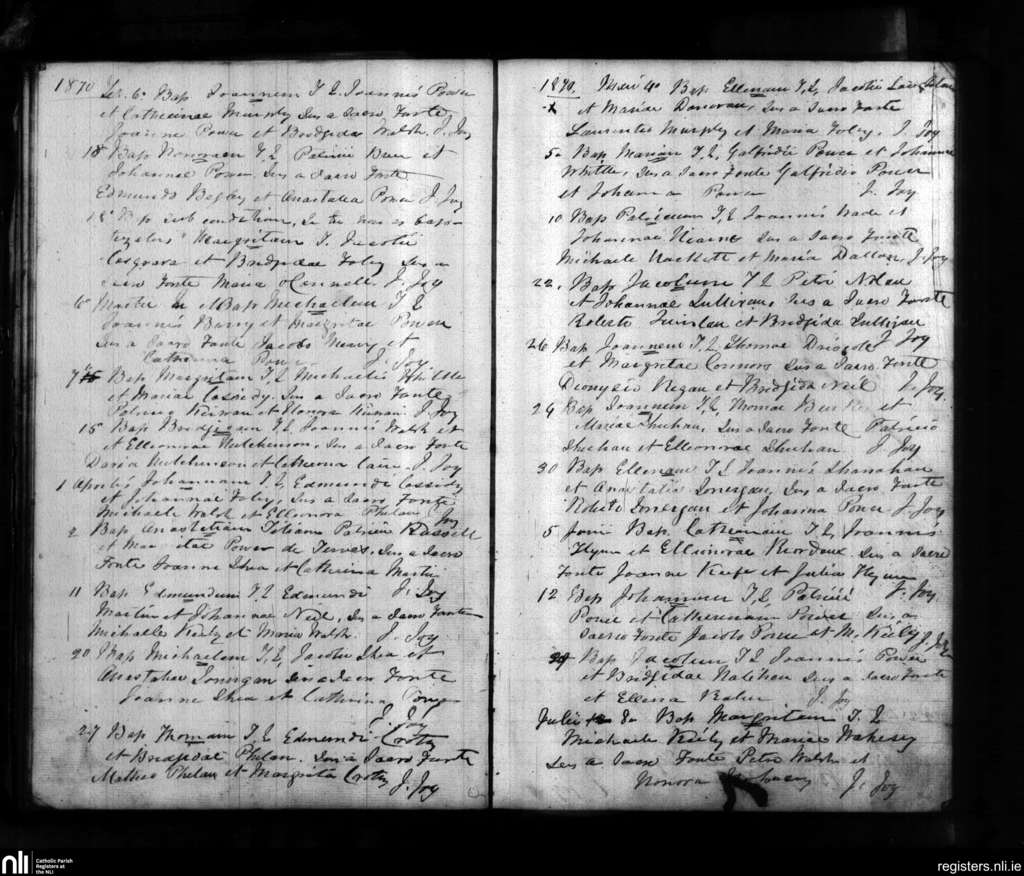 1870 Feb. 6 Bap Joannem F. L. Joannis Power
et Catherinae Murphy Sus a Sacro Fonte
Joanne Power et Bridgida Walsh J. Joy
18 Bap Honoram F L Patricii et
Johannae Power, Sus a Sacro Fonte
Edmundo Begley et Anastatia Power J. Joy
Bap sub conditione,
Margritam F.
Cosgrave et Bridgidae Foley Sus a
Sacro Fonte Maria O Connell J. Joy
Bap Michaelem F L
Joannis Barry et Margritae Power
Sus a Sacro Fonte Jacobo et
Catherina Power J. Joy
7 Bap Margritam F L Michaelis Whittle
et Mariae Cassidy. Sus a Sacro Fonte
Patricio Kirwan et Honora Kirwan J. Joy
15 Bap Bridgidam F L Joannis Walsh et
et Ellenorae Hutchinson, Sus a Sacro Fonte
Hutchinson et Catherina J. Joy
1 Aprilis Johannam F L, Edmundi Cassidy
et Johannae Foley, Sus a Sacro Fonte
Michaele Walsh et Ellenora Phelan J. Joy
2 Bap Anastatiam Patricii Russell
et Power de Sus a Sacro
Fonte Joanne Shea et Catherina Martin
J. Joy
11 Bap Edmundum F L Edmundi
Martin et Johannae Neil, Sus a Sacro Fonte
Michaele Kiely et Maria Walsh. J. Joy
20 Bap Michaelem F. L, Jacobi Shea et
Anastatiae Lonergan Sus a Sacro Fonte
Joanne Shea et Catherina
J. Joy
27 Bap Thomam F. L Edmundi Crotty
et Bridgidae Phelan. Sus a Sacro Fonte
Matheo Phelan et Margrita Crotty
J. Joy
1870. Bap Ellenam F L, Jacobi
et Mariae Donovan, Sus a Sacro Fonte
Laurentio Murphy et Maria Foley, J. Joy
5 Bap Mariam F. L, Galfridi Power et Johannae
Whittle, Sus a Sacro Fonte Galfrido Power
et Johanna Power J. Joy
10 Bap Patricium F, L Joannis Wade et
Johannae Sus a Sacro Fonte
Michaele Hackett et Maria Dalton, J. Joy
22, Bap Jacobum F L Petri
et Johannae Sullivan, Sus a Sacro Fonte
Roberto Quinlan et Bridgida Sullivan
J Joy
26 Bap Joannem F. L Thomae Driscole
et Margritae Connors Sus a Sacro Fonte
Dionysio Regan et Bridgida Neil J. Joy
29 Bap Joannem F L, Thomae Burke et
Mariae Sheehan, Sus a Sacro Fonte Patricio
Sheehan et Ellenora Sheehan J. Joy
30 Bap Ellenam F L Joannis Shanahan
et Anastatiae Lonergan, Sus a Sacro Fonte
Roberto Lonergan et Johanna Power J. Joy
5 Junii Bap Catherinam F L, Joannis
Flynn et Ellenorae Sus a Sacro
Fonte Joanne Keefe et Julia Flynn
J. Joy
12 Bap Johannam F, L Patricii
Power et Catherinae Power Sus a
Sacro Fonte Jacobo Power et M. Kiely J. Joy
Bap Jacobum F L Joannis Power
et Bridgidae Sus a Sacro Fonte
et Ellena J. Joy
Julii Bap Margritam F. L
Michaele Kiely et Mariae
Sus a Sacro Fonte Petro Walsh et
Honora J. Joy
nli
Catholic Parish
Registers at
the NLI
registers.nli.ie